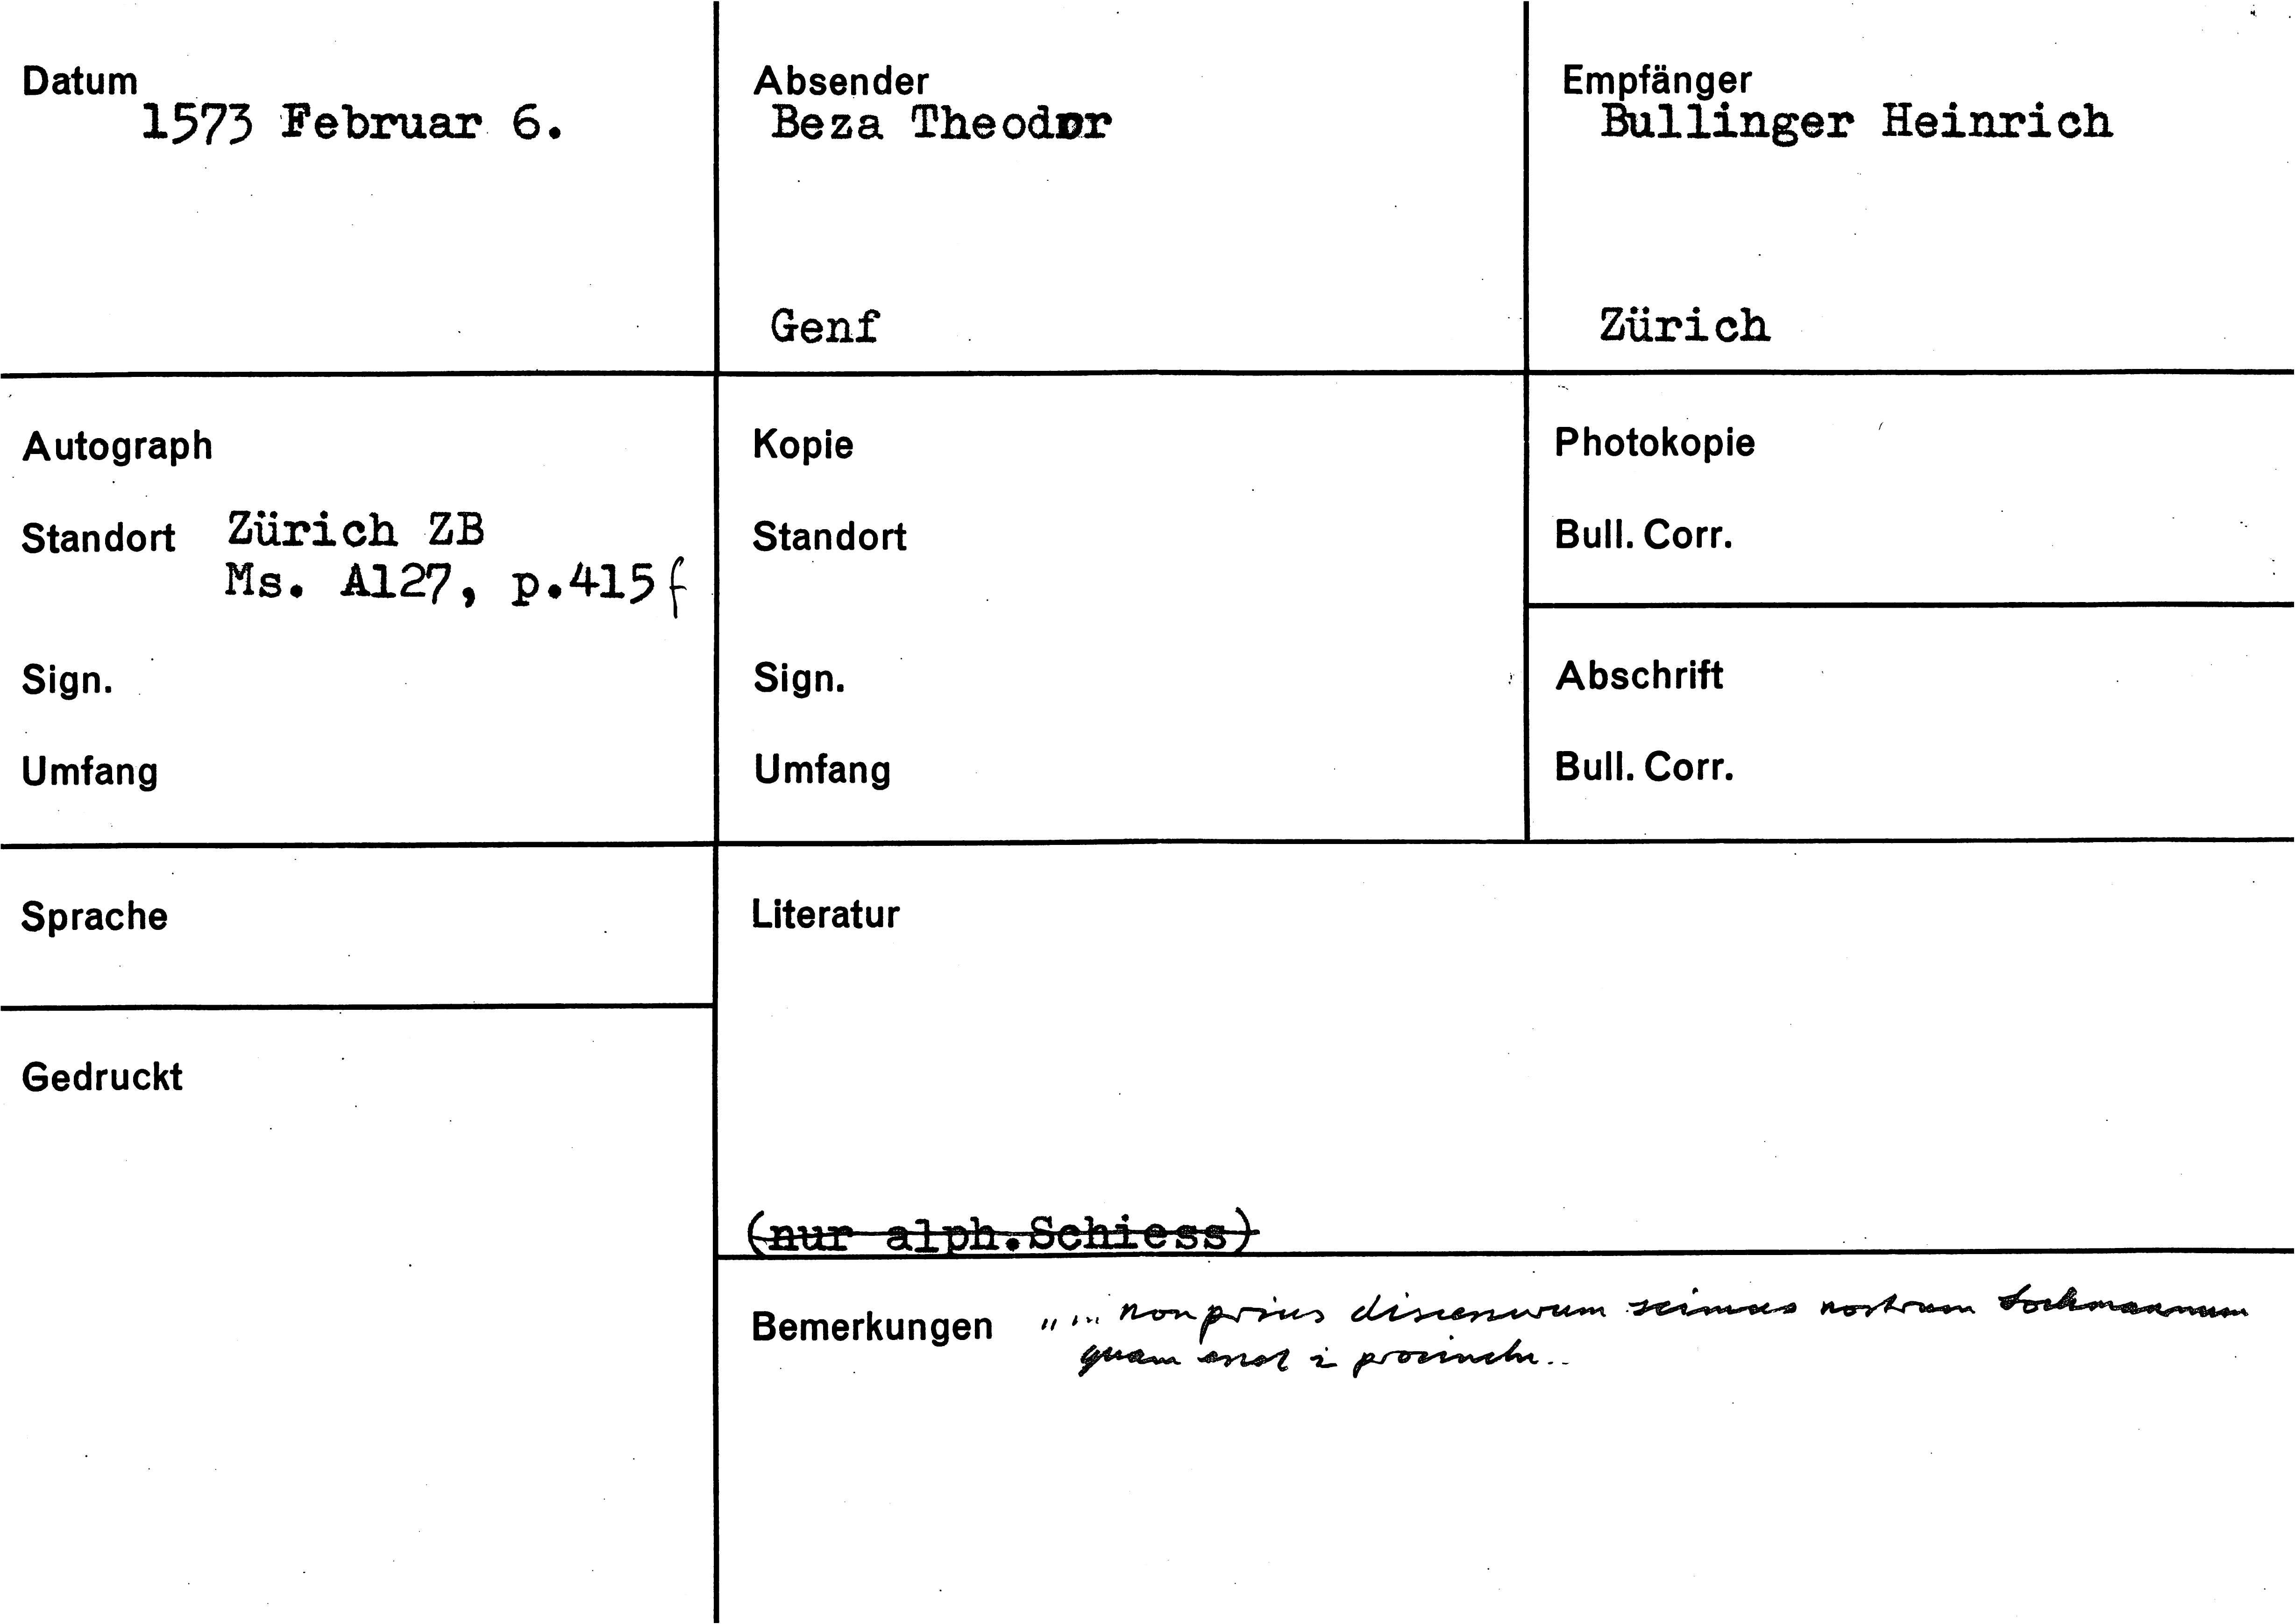 Datum
1573 Februar 6.
Absender
Beza Theodor
Genf
Empfänger
Bullinger Heinrich
Zürich
Autograph
Standort Zürich ZB
Ms. A127, p.415f
Sign.
Umfang
Kopie
Standort
Sign.
Umfang
Photokopie
Bull. Corr.
Abschrift
Bull. Corr.
Sprache
Gedruckt
Literatur
(nur alph.Schiess)
Bemerkungen "... non prius scimus nostrum
quam